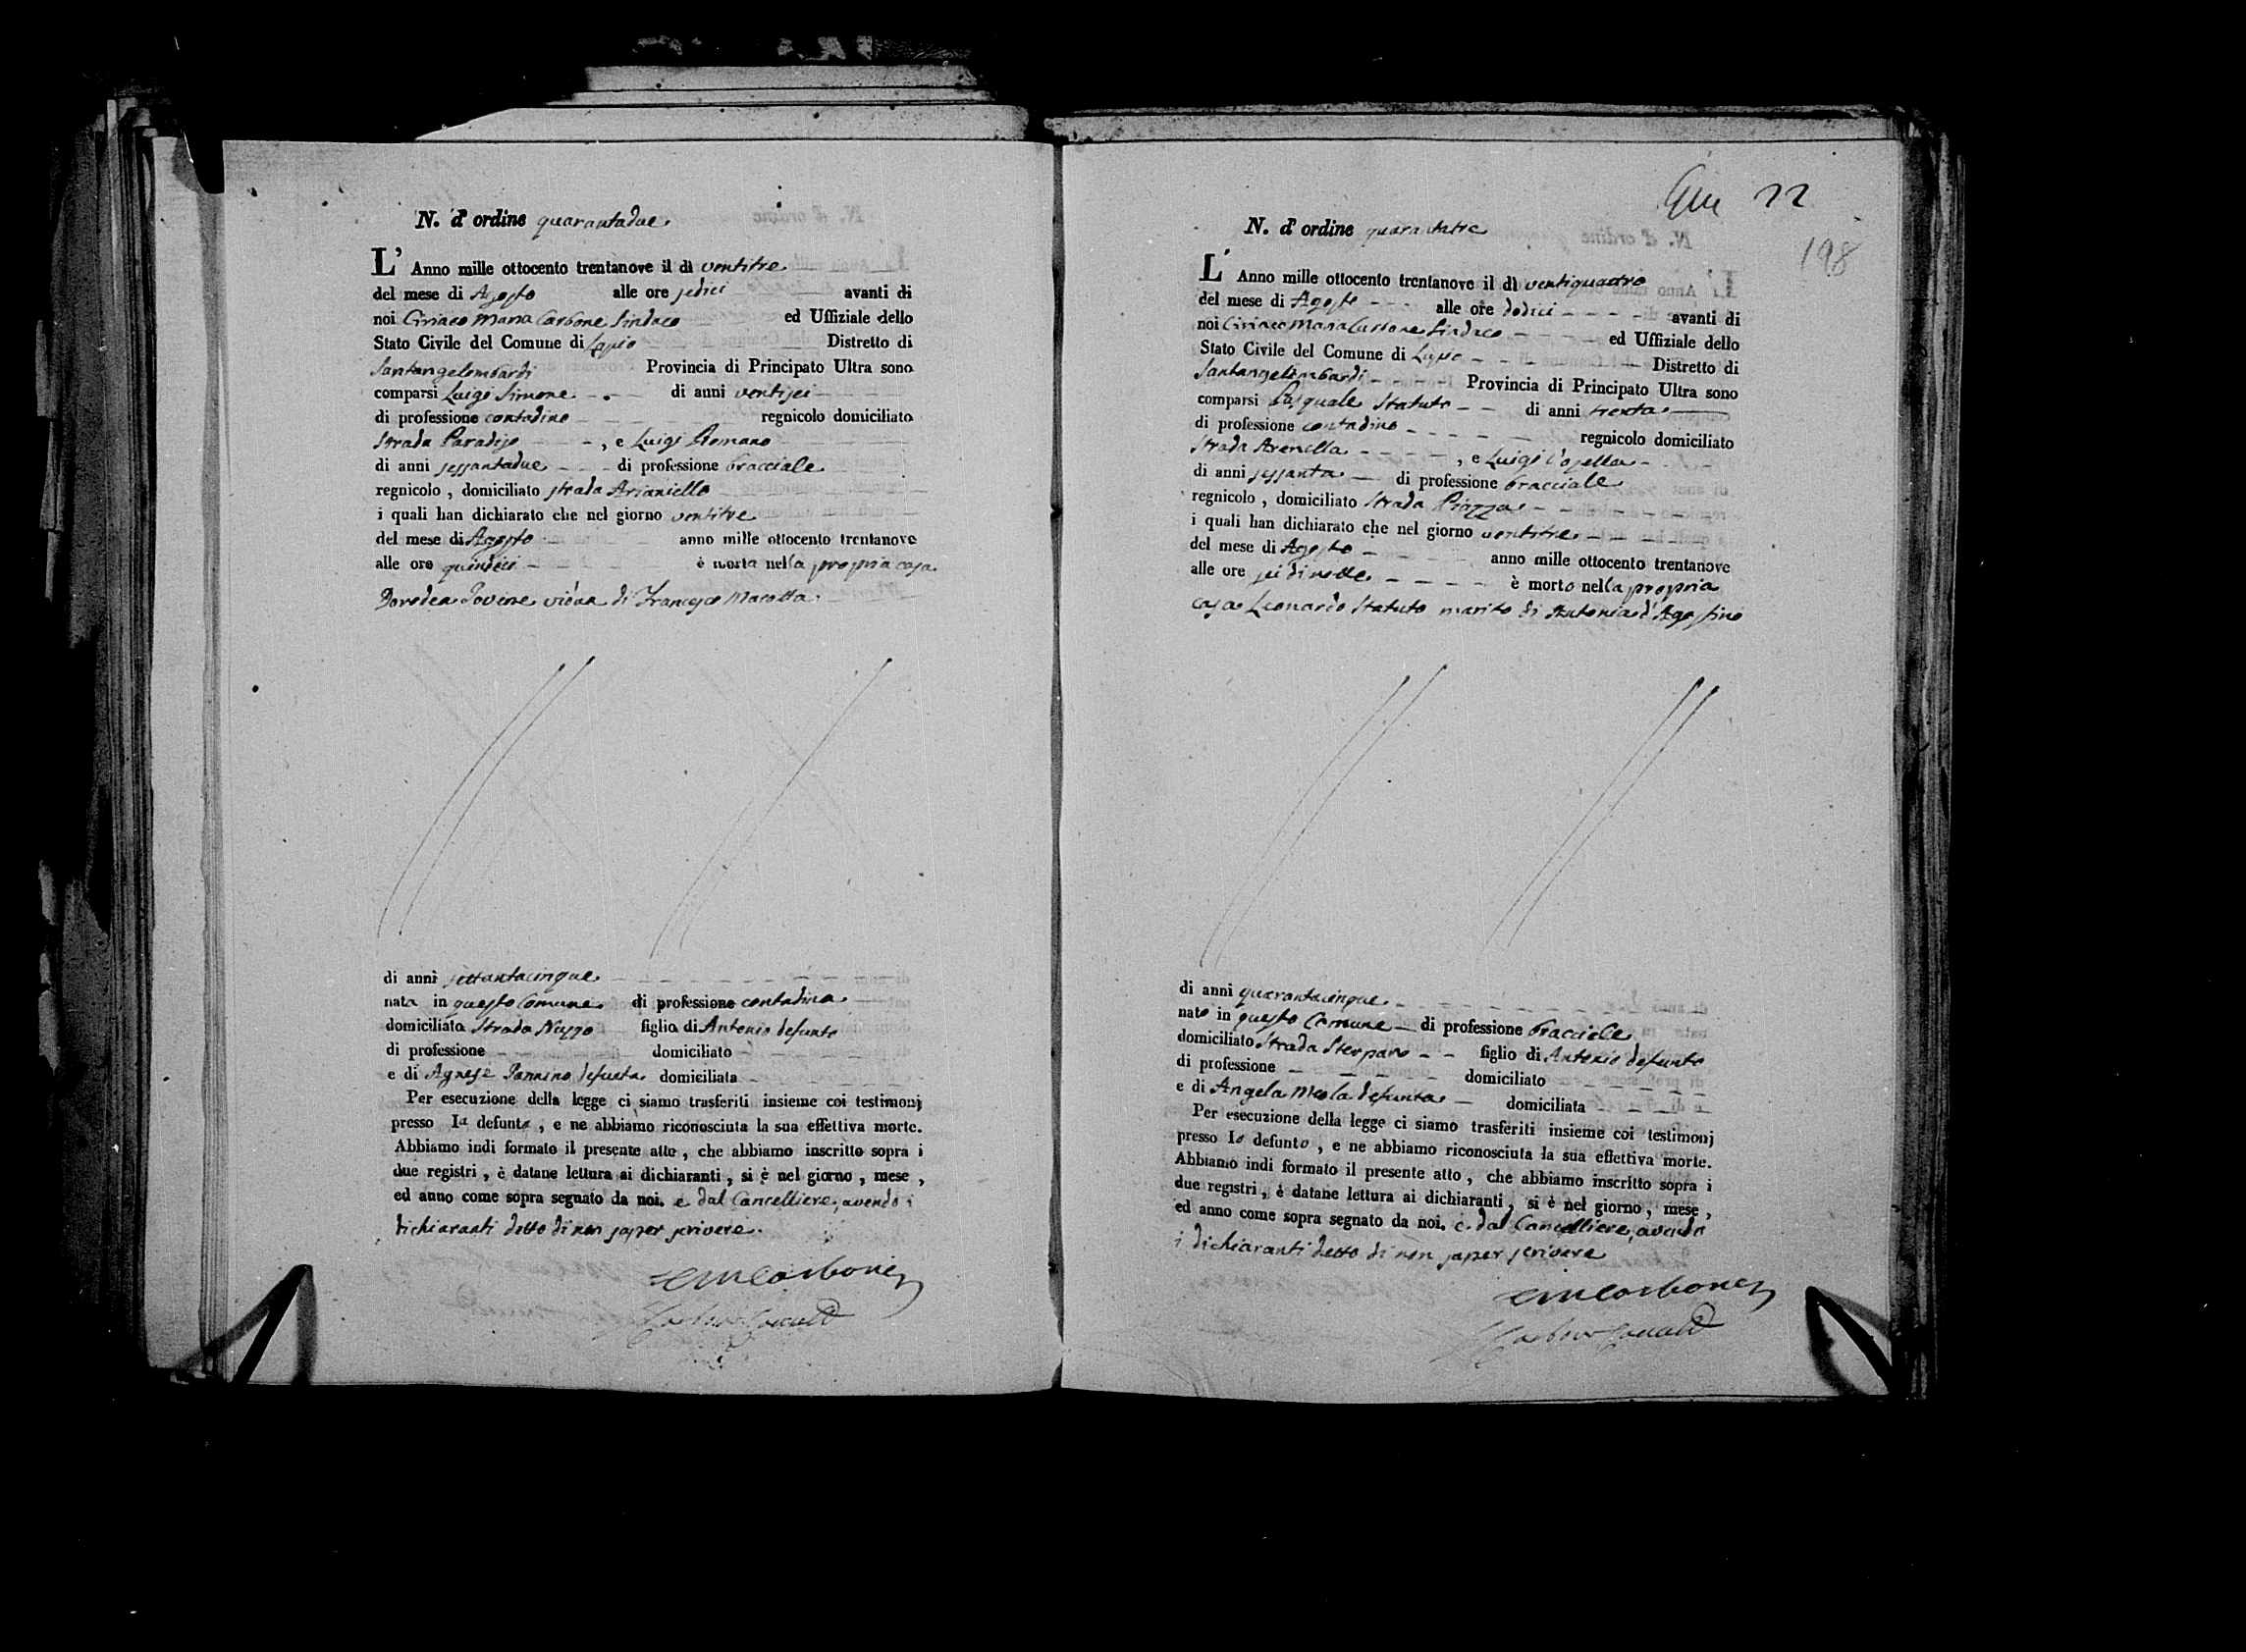 N. d' ordine quarantadue
L' Anno mille ottocento trentanove il dì ventitre
del mese di Agosto alle ore sedici avanti di
noi Ciriaco Maria Carbone Sindaco ed Uffiziale dello
Stato Civile del Comune di Lapio Distretto di
Santangelombardi Provincia di Principato Ultra sono
comparsi Luigi Simone di anni ventisei
di professione contadino regnicolo domiciliato
Strada Paradiso , e Luigi Romano
di anni sessantadue di professione bracciale
regnicolo , domiciliato strada Arianiello
i quali han dichiarato che nel giorno ventitre
del mese di Agosto anno mille ottocento trentanove
alle ore quindici è morta nella propria casa
Dorodea Iovine vidua di Francesco Marotta
di anni settantacinque
nata in questo Comune di professione contadina
domiciliata Strada Nuzzo figlia di Antonio defunto
di professione domiciliato
e di Agnese defunta domiciliata
Per esecuzione della legge ci siamo trasferiti insieme coi testimonj
presso la defunta , e ne abbiamo riconosciuta la sua effettiva morte.
Abbiamo indi formato il presente atto , che abbiamo inscritto sopra i
due registri , è datane lettura ai dichiaranti , si è nel giorno , mese ,
ed anno come sopra segnato da noi. e dal Cancelliere, avendo i
dichiaranti detto di non saper scrivere.
CMCarbone
22
198
N. d' ordine quarantatre
L' Anno mille ottocento trentanove il dì ventiquattro
del mese di Agosto alle ore dodici avanti di
noi Ciriaco Maria Carbone Sindaco ed Uffiziale dello
Stato Civile del Comune di Lapio Distretto di
Santangelombardi Provincia di Principato Ultra sono
comparsi Pasquale Statuto di anni trenta
di professione contadino regnicolo domiciliato
Strada Arenella , e Luigi
di anni sessanta di professione bracciale
regnicolo , domiciliato Strada Piazza
i quali han dichiarato che nel giorno ventitre
del mese di Agosto anno mille ottocento trentanove
alle ore sei di notte è morto nella propria
casa Leonardo Statuto marito di Antonia d'Agostino
di anni quarantacinque
nato in questo Comune di professione bracciale
domiciliato Strada figlio di Antonio defunto
di professione domiciliato
e di Angela Meola defunta domiciliata
Per esecuzione della legge ci siamo trasferiti insieme coi testimonj
presso lo defunto , e ne abbiamo riconosciuta la sua effettiva morte.
Abbiamo indi formato il presente atto , che abbiamo inscritto sopra i
due registri , è datane lettura ai dichiaranti , si è nel giorno , mese ,
ed anno come sopra segnato da noi. e dal Cancelliere, avendo
i dichiaranti detto di non saper scrivere
CMCarbone